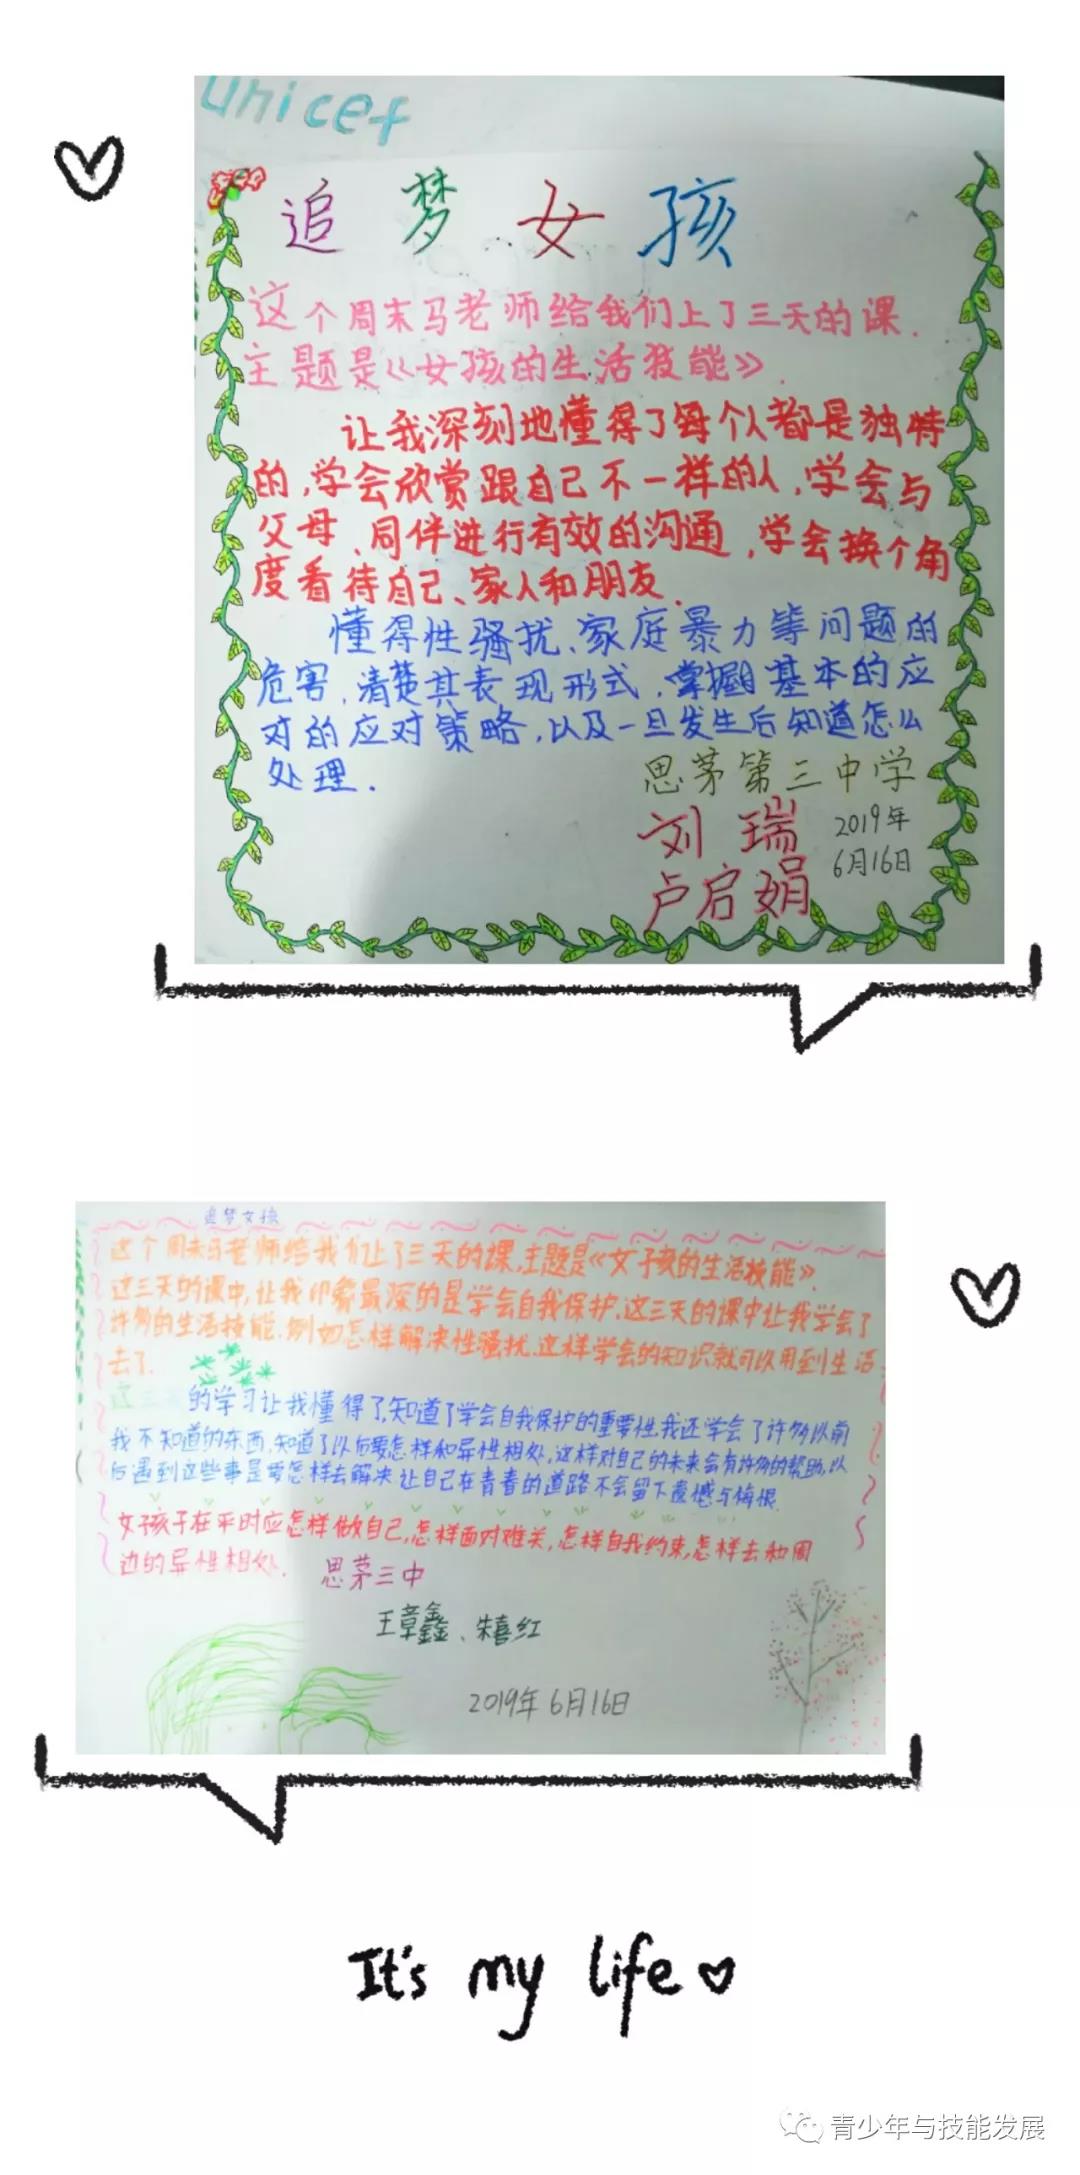 unicef
追梦女孩
这个周末马老师给我们上了三天的课.
主题是《女孩的生活技能》.
让我深刻地懂得了每个人都是独特
的,学会欣赏跟自己不一样的人,学会与
父母、同伴进行有效的沟通,学会换个角
度看待自己、家人和朋友.
懂得性骚扰、家庭暴力等问题的
危害,清楚其表现形式,掌握基本的应
对的应对策略,以及一旦发生后知道怎么
处理.
思茅第三中学
刘瑞
2019年
6月16日
卢启娟
追梦女孩
这个周末马老师给我们上了三天的课,主题是《女子孩的生活技能》.
这三天的课中,让我印象最深的是学会自我保护.这三天的课中让我学会了
许多的生活技能.例如怎样解决性骚扰.这样学会的知识就可以用到生活
去了.
这三天的学习让我懂得了,知道了学会自我保护的重要性,我还学会了许多以前
我不知道的东西,知道了以后要怎样和异性相处,这样对自己的未来会有许多的帮助,以
后遇到这些事是要怎样去解决让自己在青春的道路不会留下遗憾与悔恨.
女孩子在平时应怎样做自己,怎样面对难关,怎样自我约束,怎样去和周
边的异性相处.
思茅三中
王章鑫、朱禧红
2019年6月16日
It's my life
青少年与技能发展